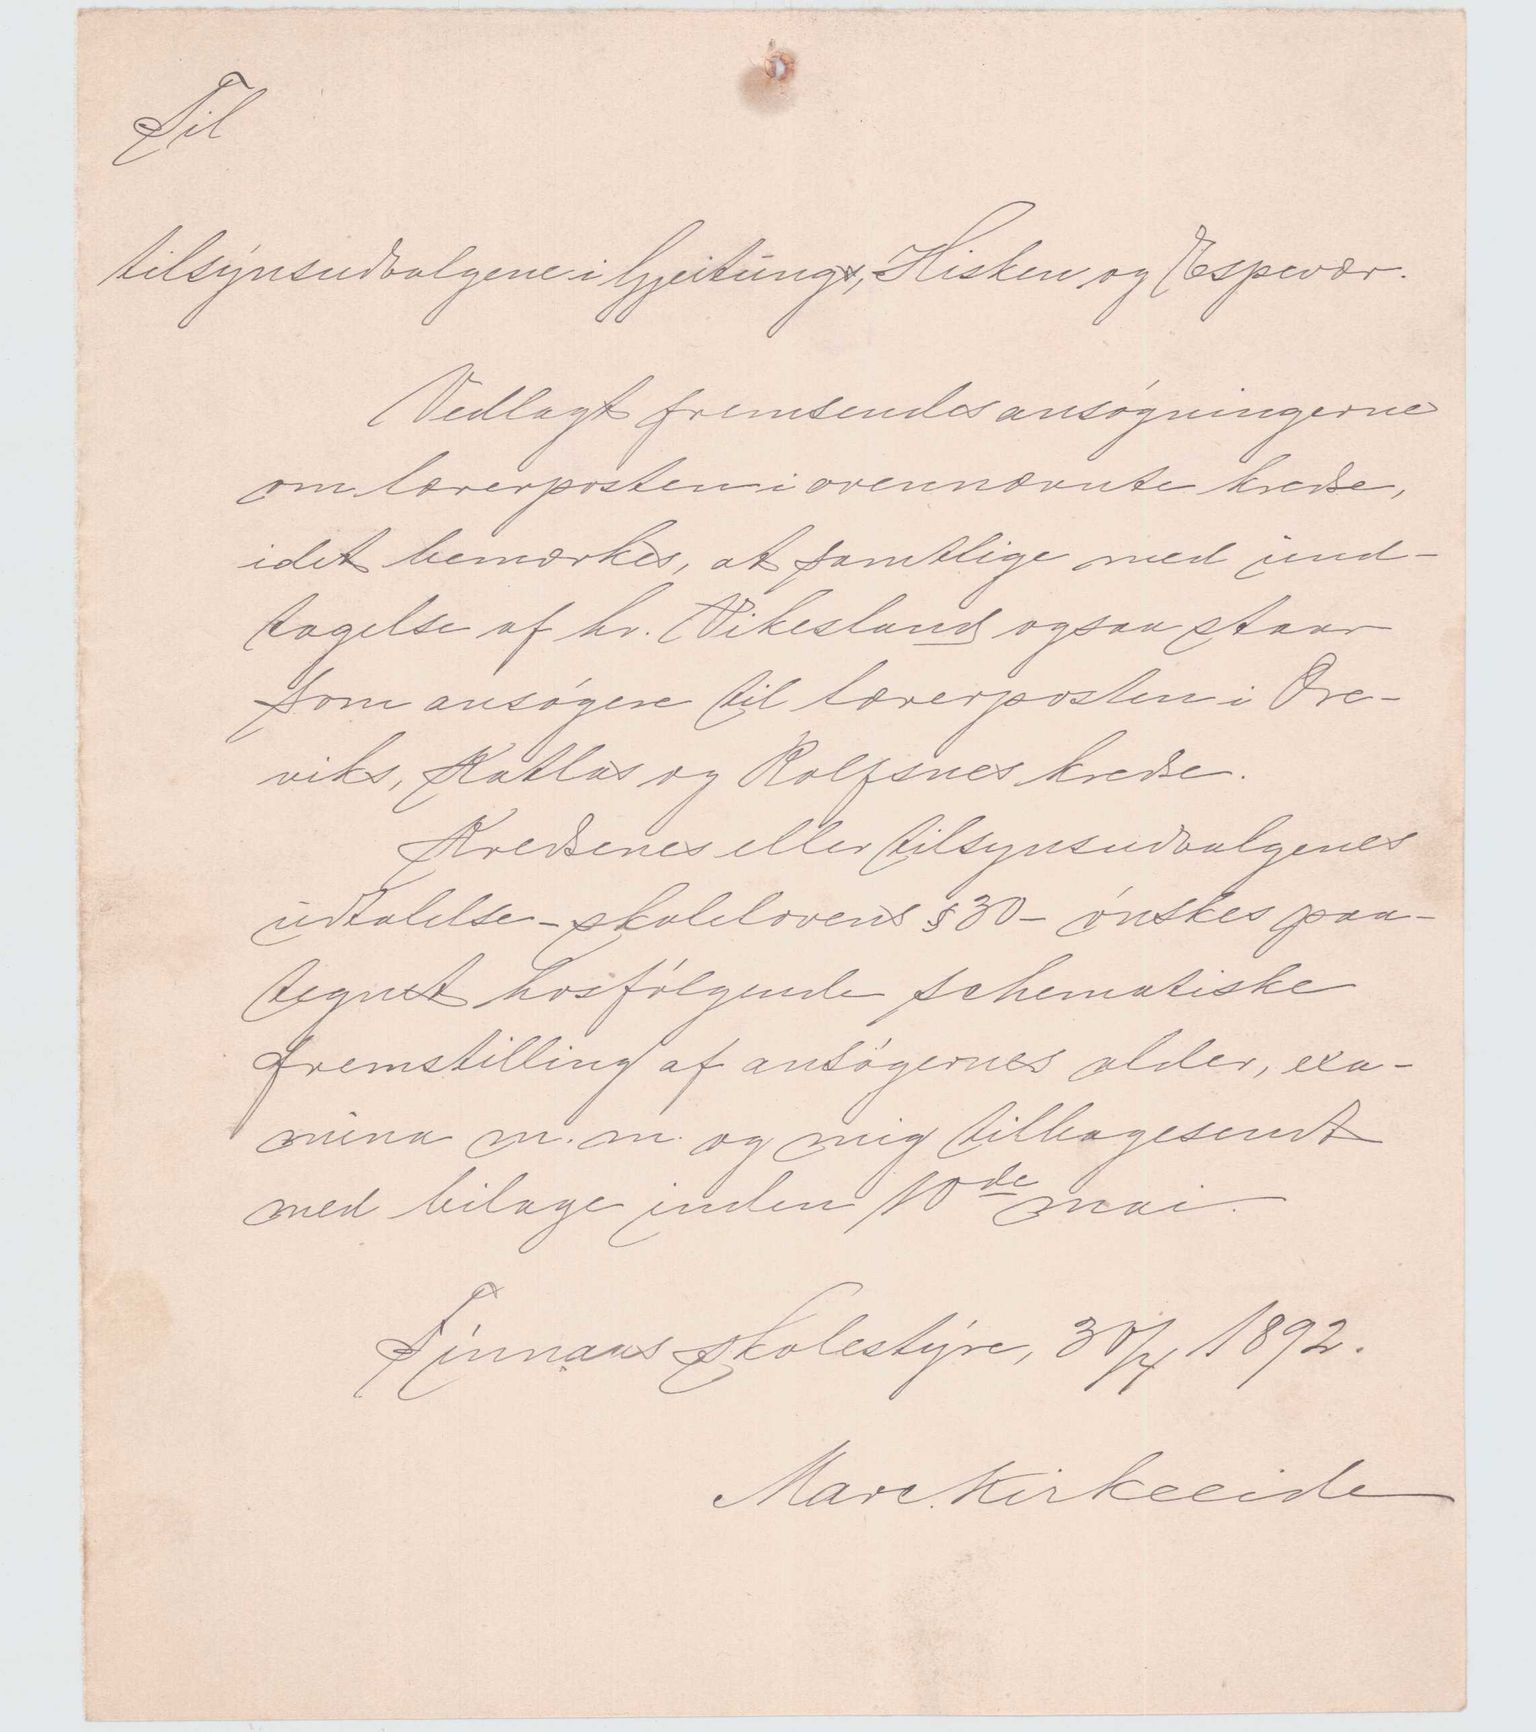 Til
tilsynsudvalgene i Gjeitungs, Hisken og Espevær.
Vedlagt fremsendes ansøgningerne
om lærerposten i ovennævnte kredse,
idet bemærkes, at samtlige med und-
tagelse af hr. Vikesland ogsaa staar
som ansøgere til lærerposten i Øre-
viks, Katlas og Rolfsnes kredse.
Kredsenes eller tilsynsudvalgenes
udtalelse – skolelovens § 30 – ønskes paa-
tegnet hosfølgende schematiske
fremstilling af ansøgernes alder, exa-
mina m. m. og mig tilbagesendt
med bilage inden 10de mai.
Finnaas skolestyre, 30/4 1892.
Mare Kirkeeide